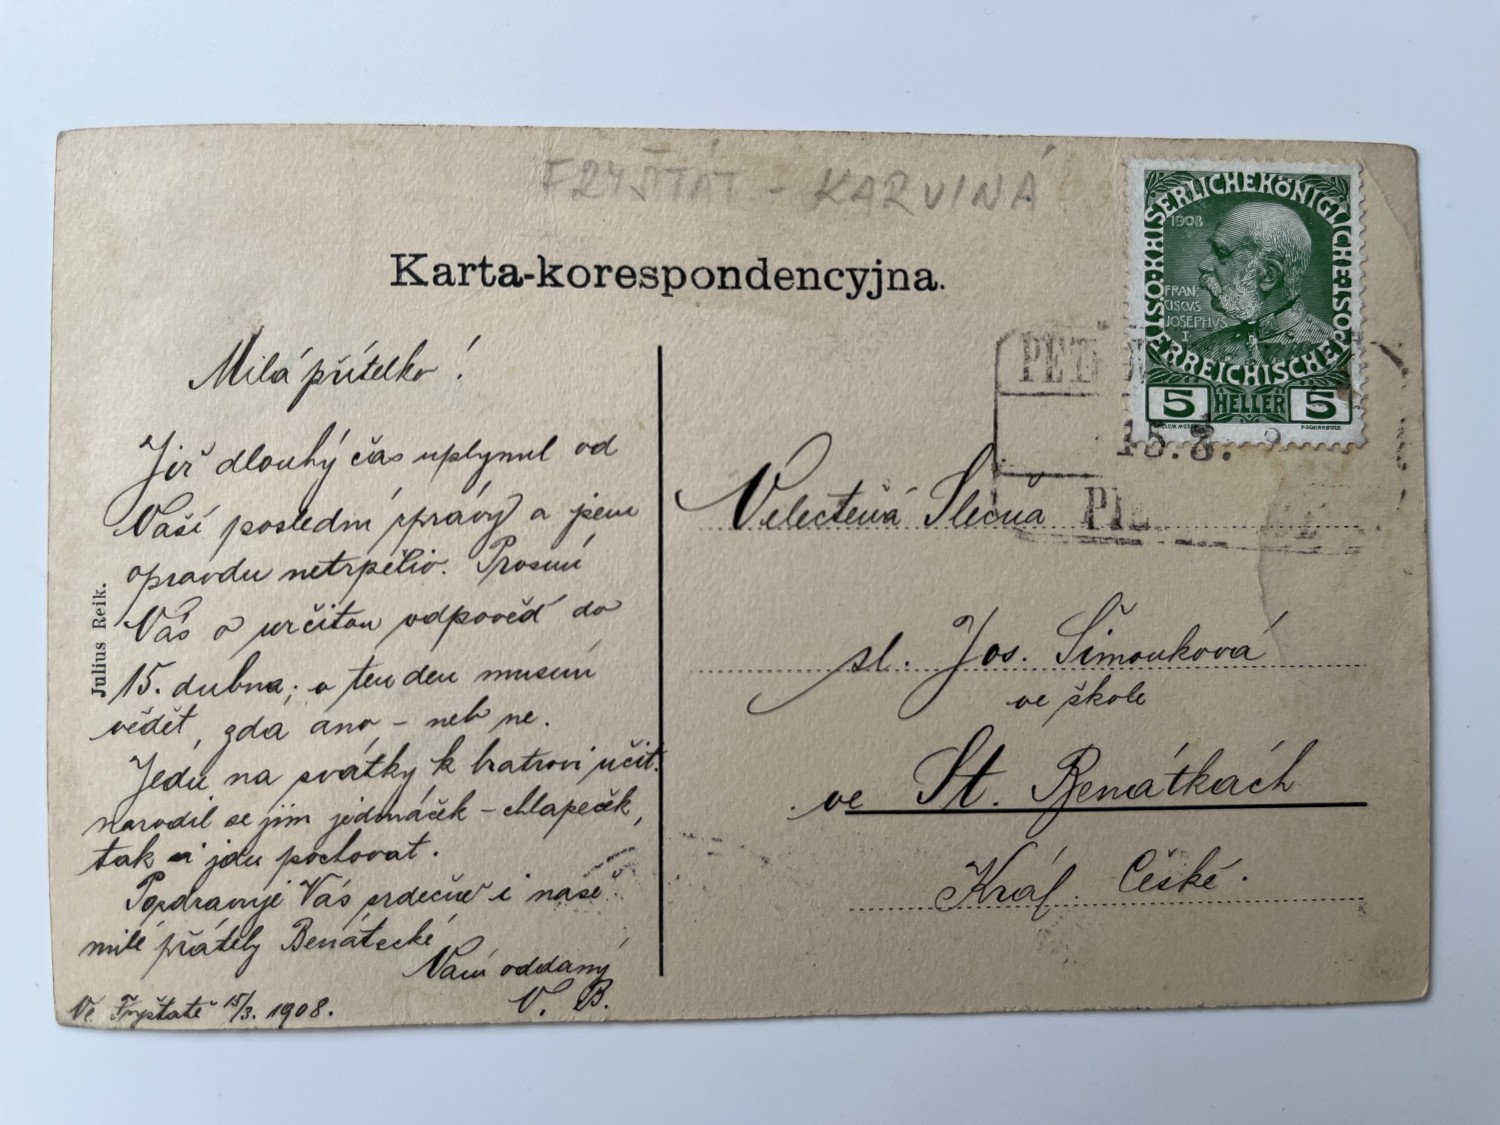 FRYŠTÁT - KARVINÁ
Karta-korespondencyjna.
Milá přítelko!
Již dlouhý čas uplynul od
Vaší poslední zprávy a jsem
opravdu netrpěliv. Prosím
Vás o určitou odpověď do
15. dubna; a ten den musím
vědět, zda ano – neb ne.
Jedu na svátky k bratrovi učit.
narodil se jim jedináček – chlapeček,
tak i jdu pochovat.
Pozdravuje Vás srdečně i naše
milé přátely Benátecké
Vám oddaný
V. B.
Ve Fryštatě 15/3. 1908.
Julius Reik.
KAISERLICHE KÖNIGLICHE ÖSTERREICHISCHE POST
1908
FRAN
CISCUS
JOSEPHVS
I
5 HELLER 5
15.3.
Velectěná Slečna
sl. Jos. Šimonková
ve škole
ve St. Benátkách
Král. České.